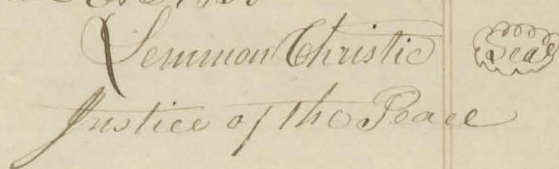 Lemmon Christie Seal
Justice of the Peace